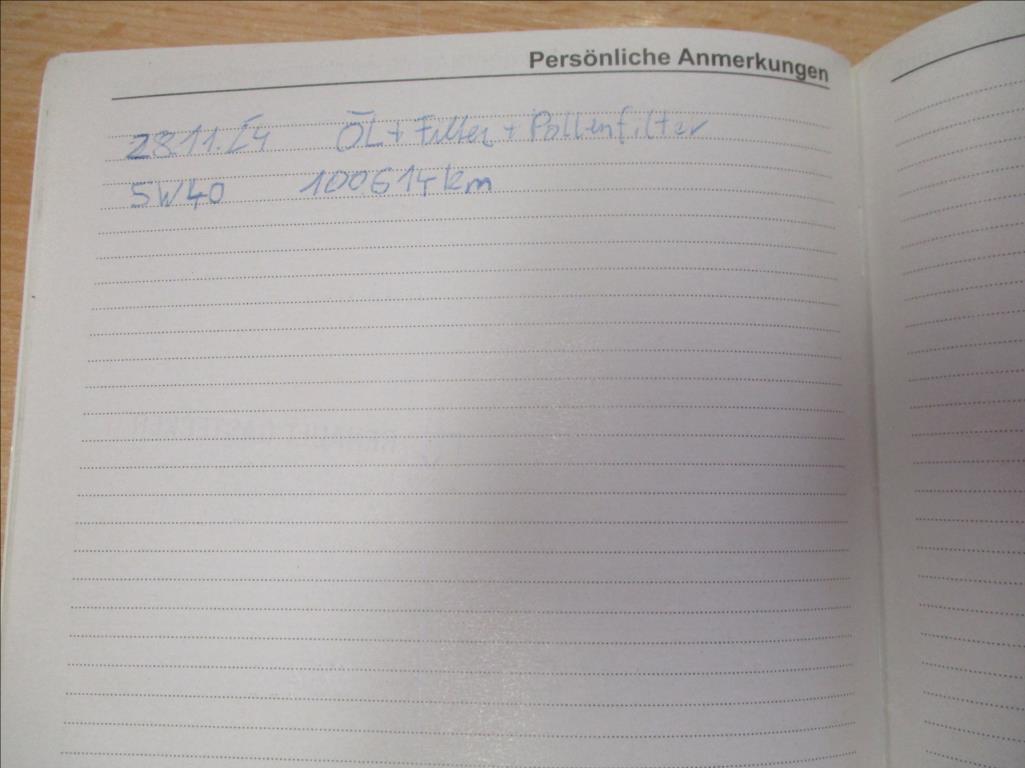 Persönliche Anmerkungen
28.11.24 ÖL + Filter + Pollenfilter
5W40 100614 km